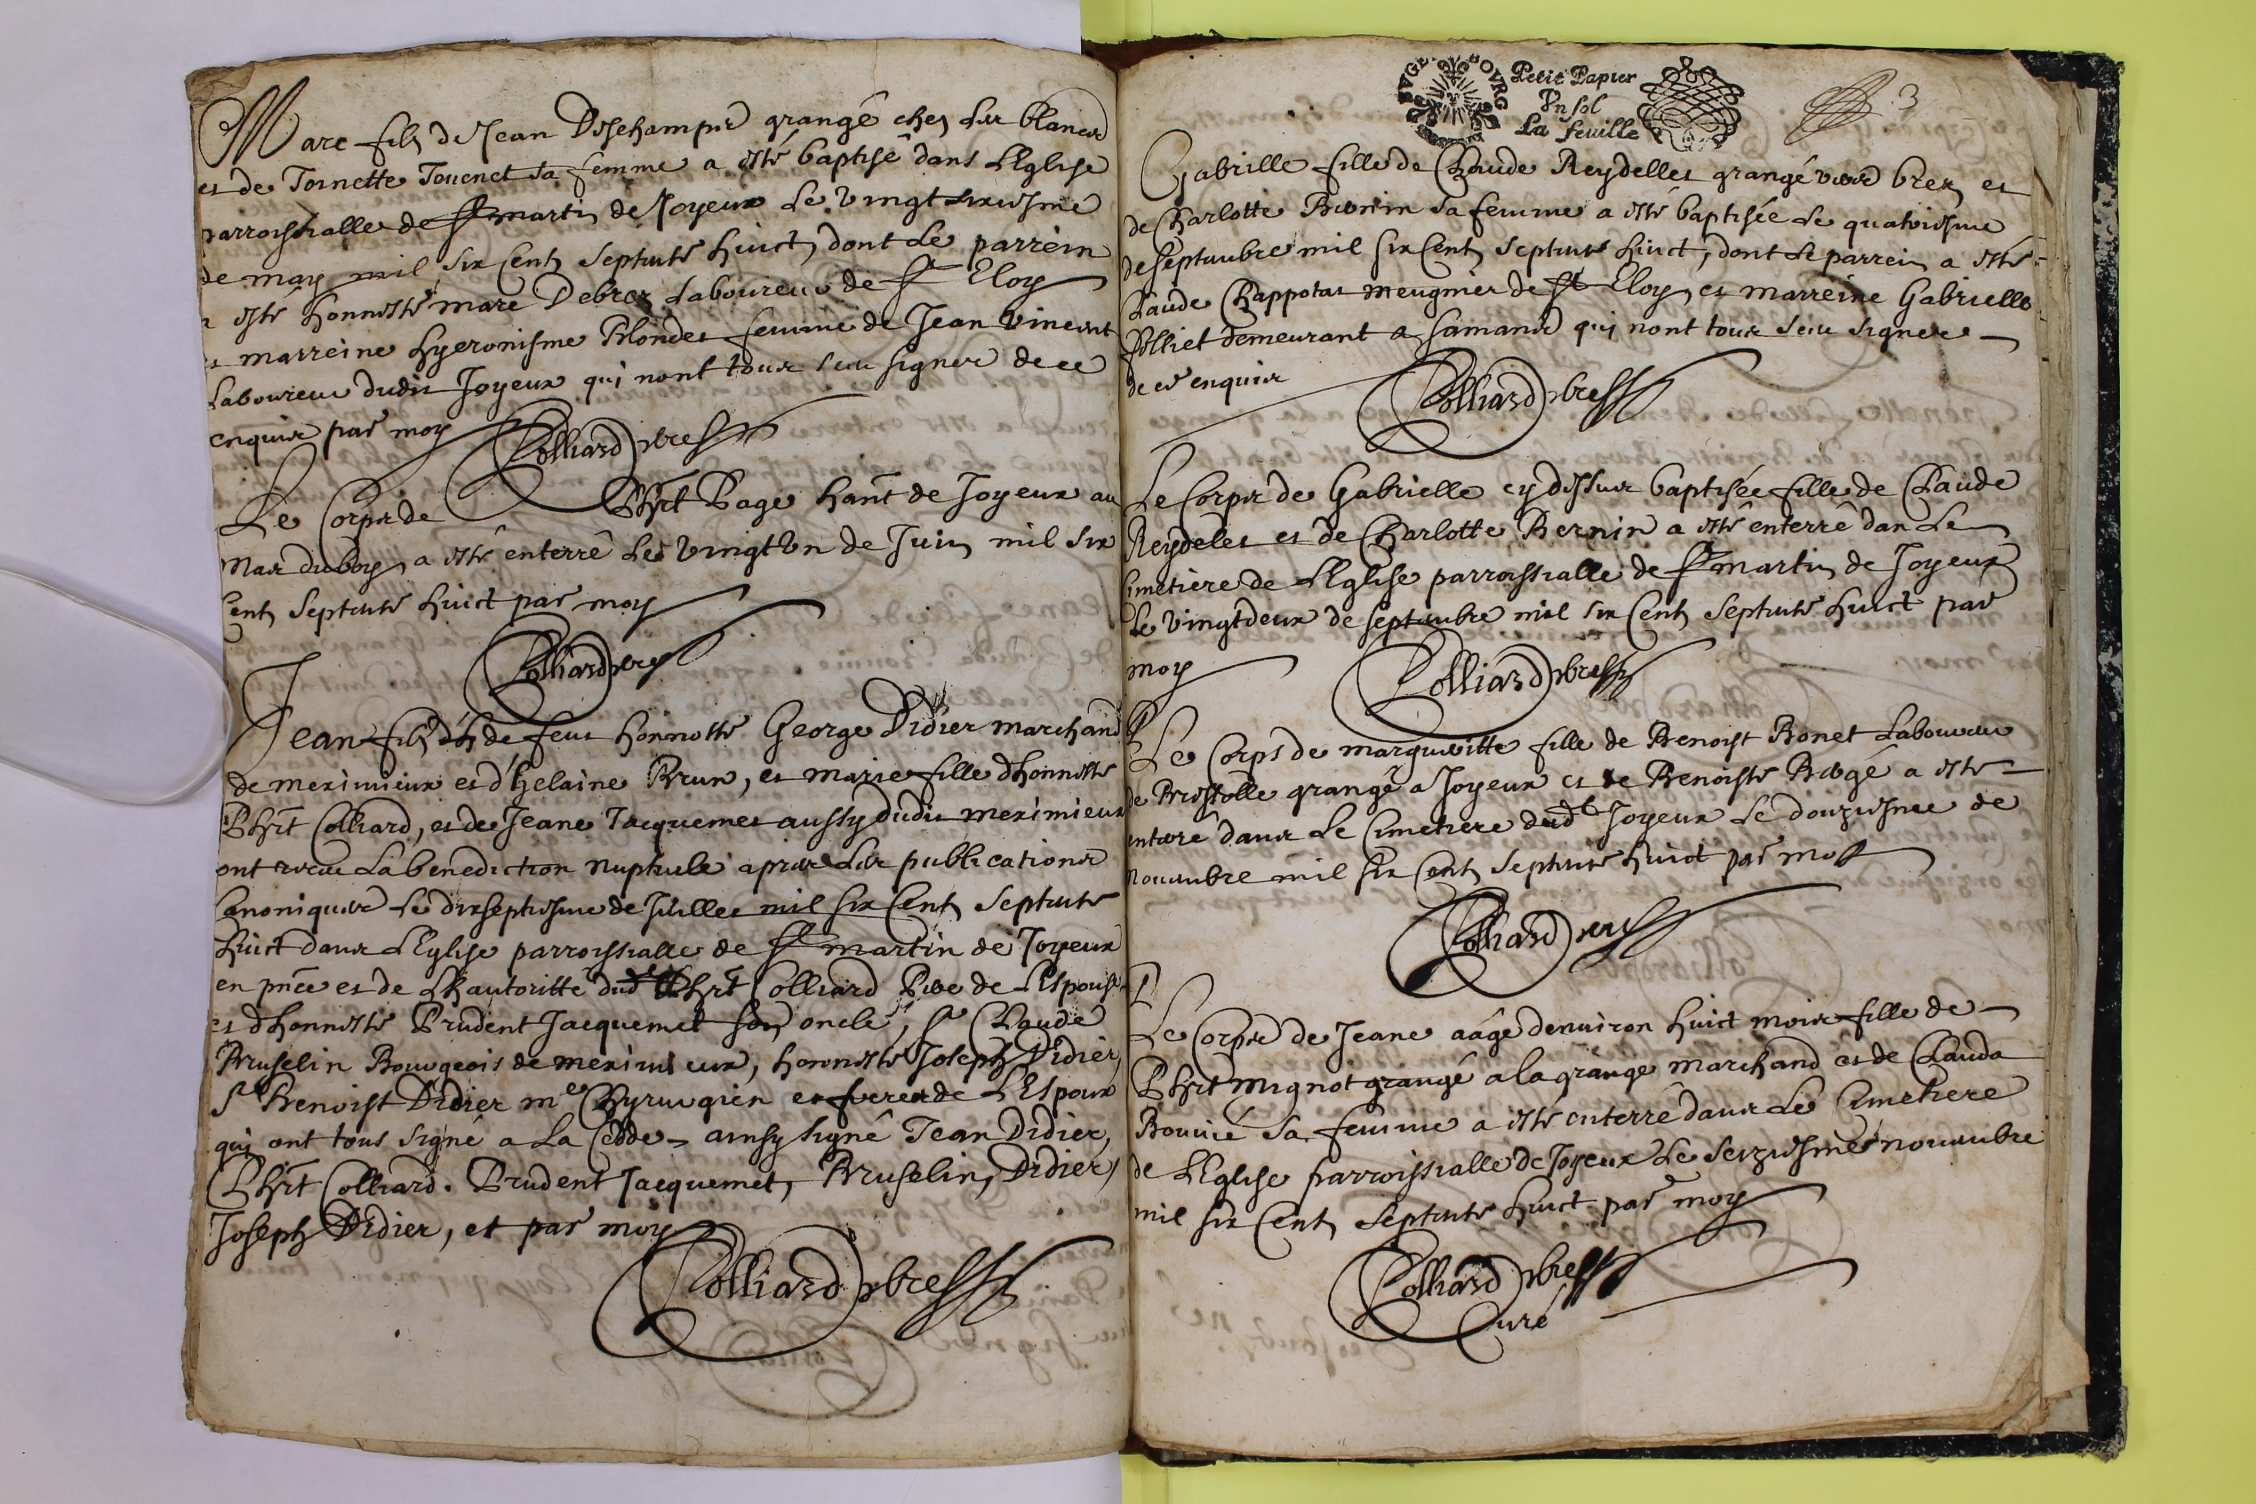 Marc filz de Jean Deschamps grangé chez les blancs
et de Toinette Touenet sa femme a esté baptisé dans L'Eglise
parroissialle de St martin de Joyeux Le vingt sixiesme
de may mil six Cent septante huict, dont Le parrein
a esté honneste marc Debrez Laboureur de St Eloy
et marreine hyeronisme Blondet femme de Jean Vincent
Laboureur dudit Joyeux qui nont tous sceu signer de ce
enquis par moy
Colliard pbre
Le Corps de Phirt Page hant de Joyeux au
mas duboy a esté enterré Le vingt un de Juin mil six
Cent septante huict par moy
Colliard pbre
Jean filz de feu honneste George Didier marchand
de meximieux et d'helaine Brun, et marie fille d'honneste
Phirt Colliard, et de Jeane Jacquemet aussy dudit meximieux
ont receu La benediction nuptiale apres Les publications
Canoniques Le dixseptiesme de Juillet mil six Cent septante
huict dans L'Eglise parroissialle de St martin de Joyeux
en pnce et de Lhautoritté dud Phirt Colliard Pere de L'Espouse
et d'honneste Prudent Jacquemet son oncle, Sr Claude
Bruselin Bourgeois de meximieux, honneste Joseph Didier,
Sr Benoist Didier me Chyrurgien et freres de L'Espoux
qui ont tous signé a La Cedde ainsy signé Jean Didier,
Phirt Colliard. Prudent Jacquemet, Bruselin, Didier,
Joseph Didier, et par moy
Colliard pbre
BVGEY BOVRG
Petit Papier
Vn sol
La feuille
3
Gabrille fille de Claude Reydellet grangé vers brez et
de Charlotte Bernin sa femme a esté baptisée Le quatriesme
de septembre mil six Cent septante huict, dont Le parrein a esté
Claude Chappotat meugnier de St Eloy et marreine Gabrielle
Folliet demeurant a Samans qui nont tous sceu signer
de ce enquis
Colliard pbre
Le Corps de Gabrielle cy dessus baptisée fille de Claude
Reydelet et de Charlotte Bernin a esté enterré dan Le
Cimetiere de L'Eglise parroissialle de St martin de Joyeux
Le vingtdeux de septembre mil six Cent septante huict par
moy
Colliard pbre
Le Corps de margueritte fille de Benoist Bonet Laboureur
de grangé a Joyeux et de Benoiste Bergé a esté
enterré dans Le Cimetiere dudt Joyeux Le douziesme de
novembre mil six Cent septante huict par moy
Colliard pbre
Le Corps de Jeane aâgé denuiron huict mois fille de
Phirt mignot grangé a la grange marchand et de Clauda
Bouvié sa femme a esté enterré dans Le Cimetiere
de L'Eglise parroissialle de Joyeux Le seiziesme novembre
mil six Cent septante huict par moy
Colliard pbre
Curé